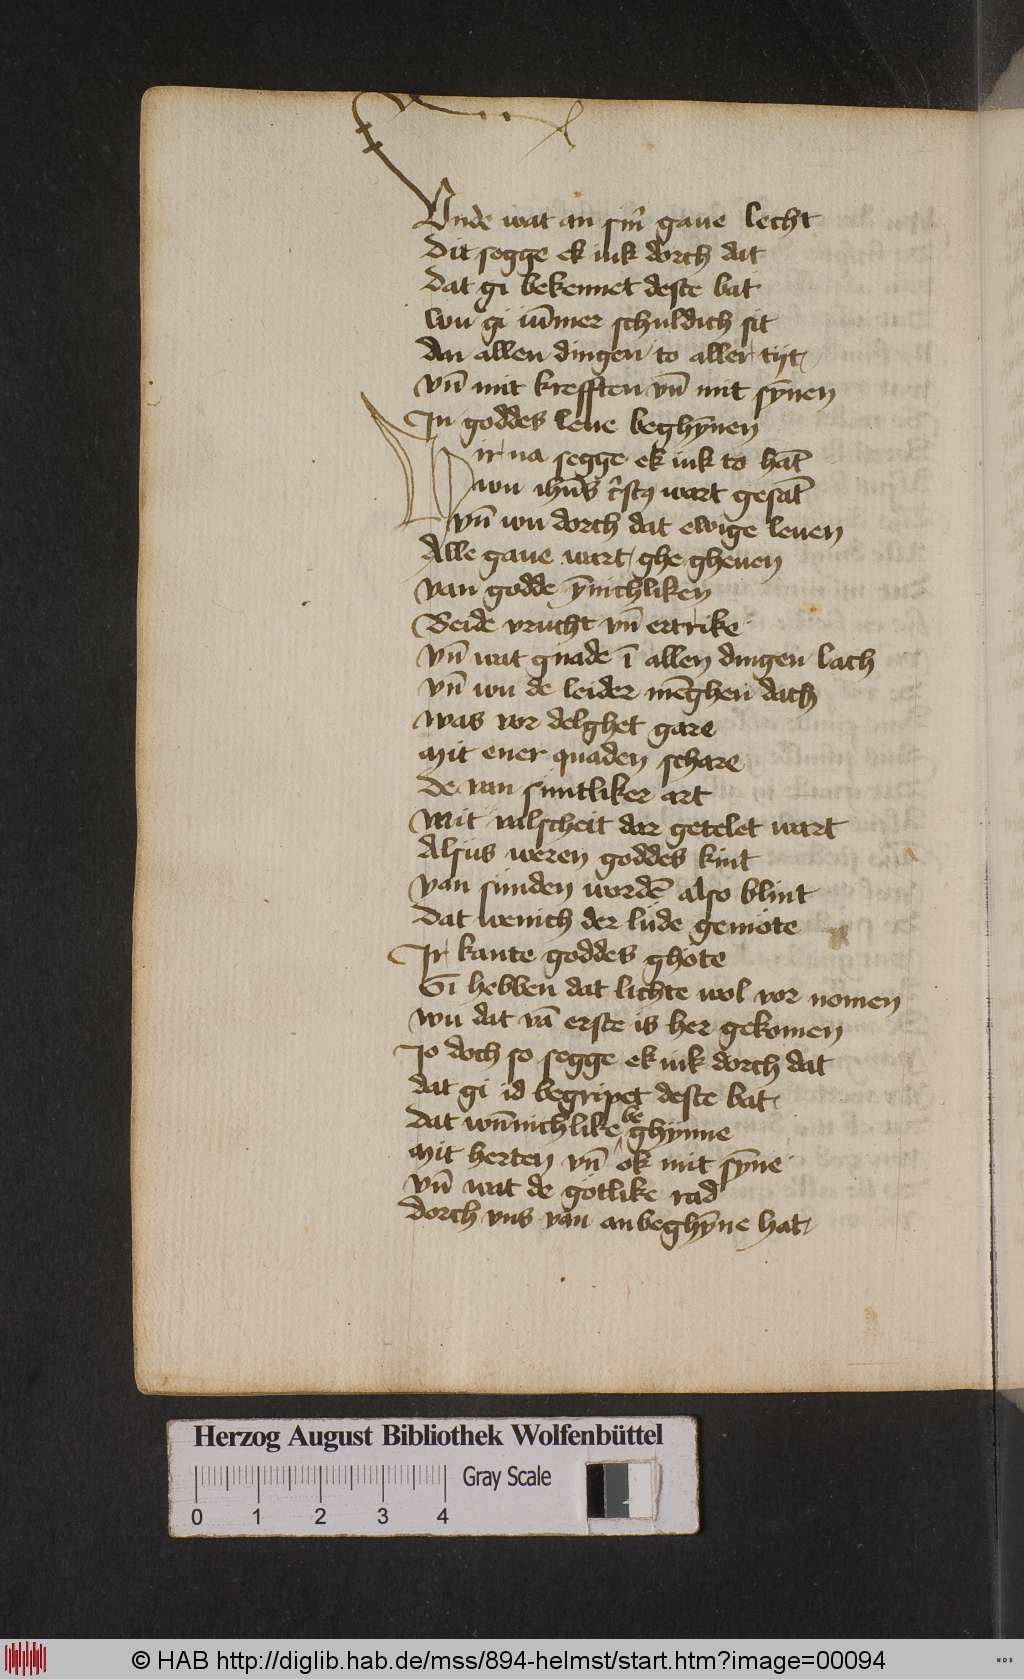 Vnde wat an sin̄ gaue lecht
Dit segge ek iuk dorch dat
Dat gi bekennet deste bat
wu gi iūmer schuldich sit
An allen dingen to aller tijt
vn̄ mit krefften vn̄ mit sȳnen
In goddes leue beghȳnen
Hir na segge ek iuk to hāt
wu ihūs c̄stꝯ wart gesāt
vn̄ wu dorch dat ewige leuen
Alle gaue wart ghe gheuen
van godde ȳnichliken
Beide vrucht vn̄ ertrike
vn̄ wat gnade ī allen dingen lach
vn̄ wu de leider mēghen dach
was vor delghet gare
mit ener quaden schare
de van suntliker art
Mit valscheit dar getelet wart
Alsus weren goddes kint
van sunden wordē also blint
Dat wenich der lude genote
Ir kante goddes ghote
Gi hebben dat lichte wol vor nomen
wu dat vā erste is her gekomen
Io doch so segge ek iuk dorch dat
dat gi id begripet deste bat
Dat wn̄nichlike be ghynne
mit herten vn̄ ok mit sȳne
vn̄ wat de gotlike rad
dorch vns van anbeghȳne hat
Herzog August Bibliothek Wolfenbüttel
Gray Scale
0 1 2 3 4
© HAB http://diglib.hab.de/mss/894-helmst/start.htm?image=00094